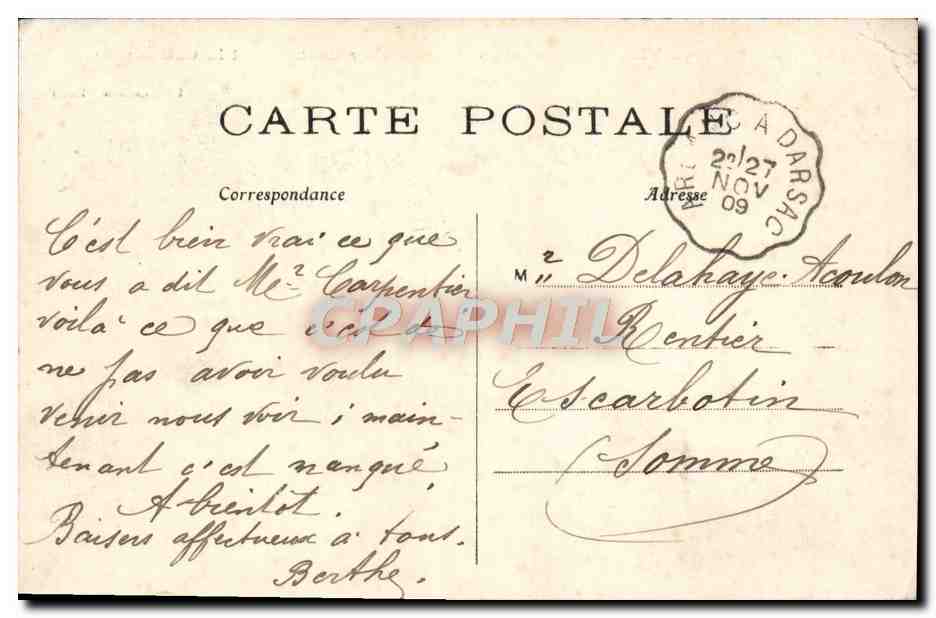 CARTE POSTALE
ARC À DARSAC
27
NOV
09
Correspondance
Adresse
C'est bien vrai ce que
vous a dit Mr Carpentier
voilà ce que c'est de
ne pas avoir voulu
venir nous voir ; main-
tenant c'est manqué.
A bientôt.
Baisers affectueux à tous.
Berthe.
Mr Delahaye-Acoulon
Rentier
Escarbotin
(Somme)
CPAPHIL